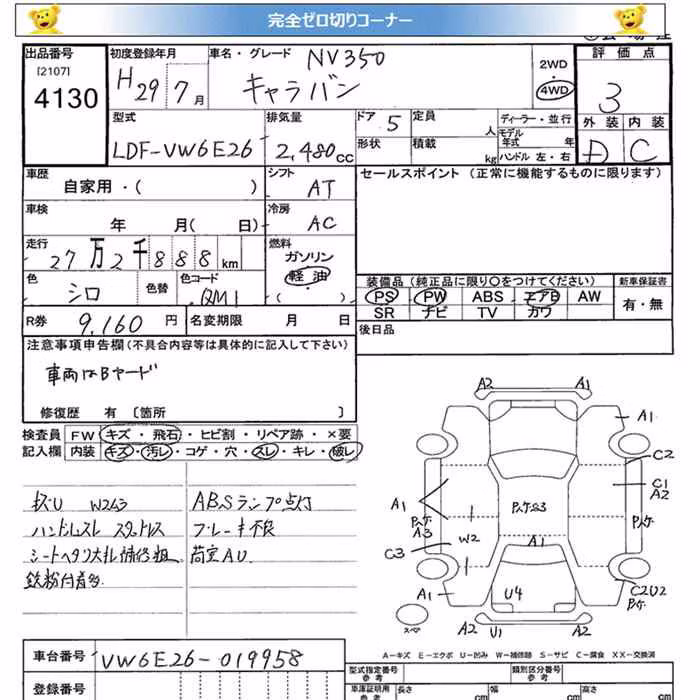 完全ゼロ切りコーナー
出品番号
[2107]
4130
初度登録年月
H 29 7 月
車名・グレード NV350
キャラバン
2WD
4WD
評価点
3
外装 内装
D C
型式
LDF-VW6E26
排気量
2,480 CC
ドア 5
形状
定員 人
積載 kg
ディーラー・並行
モデル年式 年
ハンドル 左・右
車歴
自家用・( )
シフト
AT
セールスポイント (正常に機能するものに限ります)
車検
年 月( 日)
冷房
AC
走行
27万2千888 km
燃料
ガソリン
軽油
( )
色
シロ
色替
色コード
QM1
装備品(純正品に限り○をつけてください)
PS PW ABS エアB AW
SR ナビ TV カワ
新車保証書
有・無
R券 9,160 円
名変期限 月 日
後日品
注意事項申告欄(不具合内容等は具体的に記入して下さい)
車両はBヤード
修復歴 有 [箇所 ]
検査員
記入欄
FW キズ・飛石・ヒビ割・リペア跡・×要
内装 キズ・汚レ・コゲ・穴・スレ・キレ・破レ
キズU W2A3
ABSランプ点灯
ハンドルスレ スタッドレス
ブレーキ不良
シートヘタリ大
荷室AU
鉄粉付着多
A2 A1
A1
C2
C1
A2
A1
Pハケ
A3
Pハケ
W2
A1
C3
U4
A1
C2U2
Pハケ
スペア
A2 U1 A2
A-キズ E-エクボ U-凹み W-補修跡 S-サビ C-腐食 XX-交換済
車台番号 VW6E26-019958
登録番号
型式指定番号
類別区分番号
車庫証明用
長さ cm
幅 cm
高さ cm